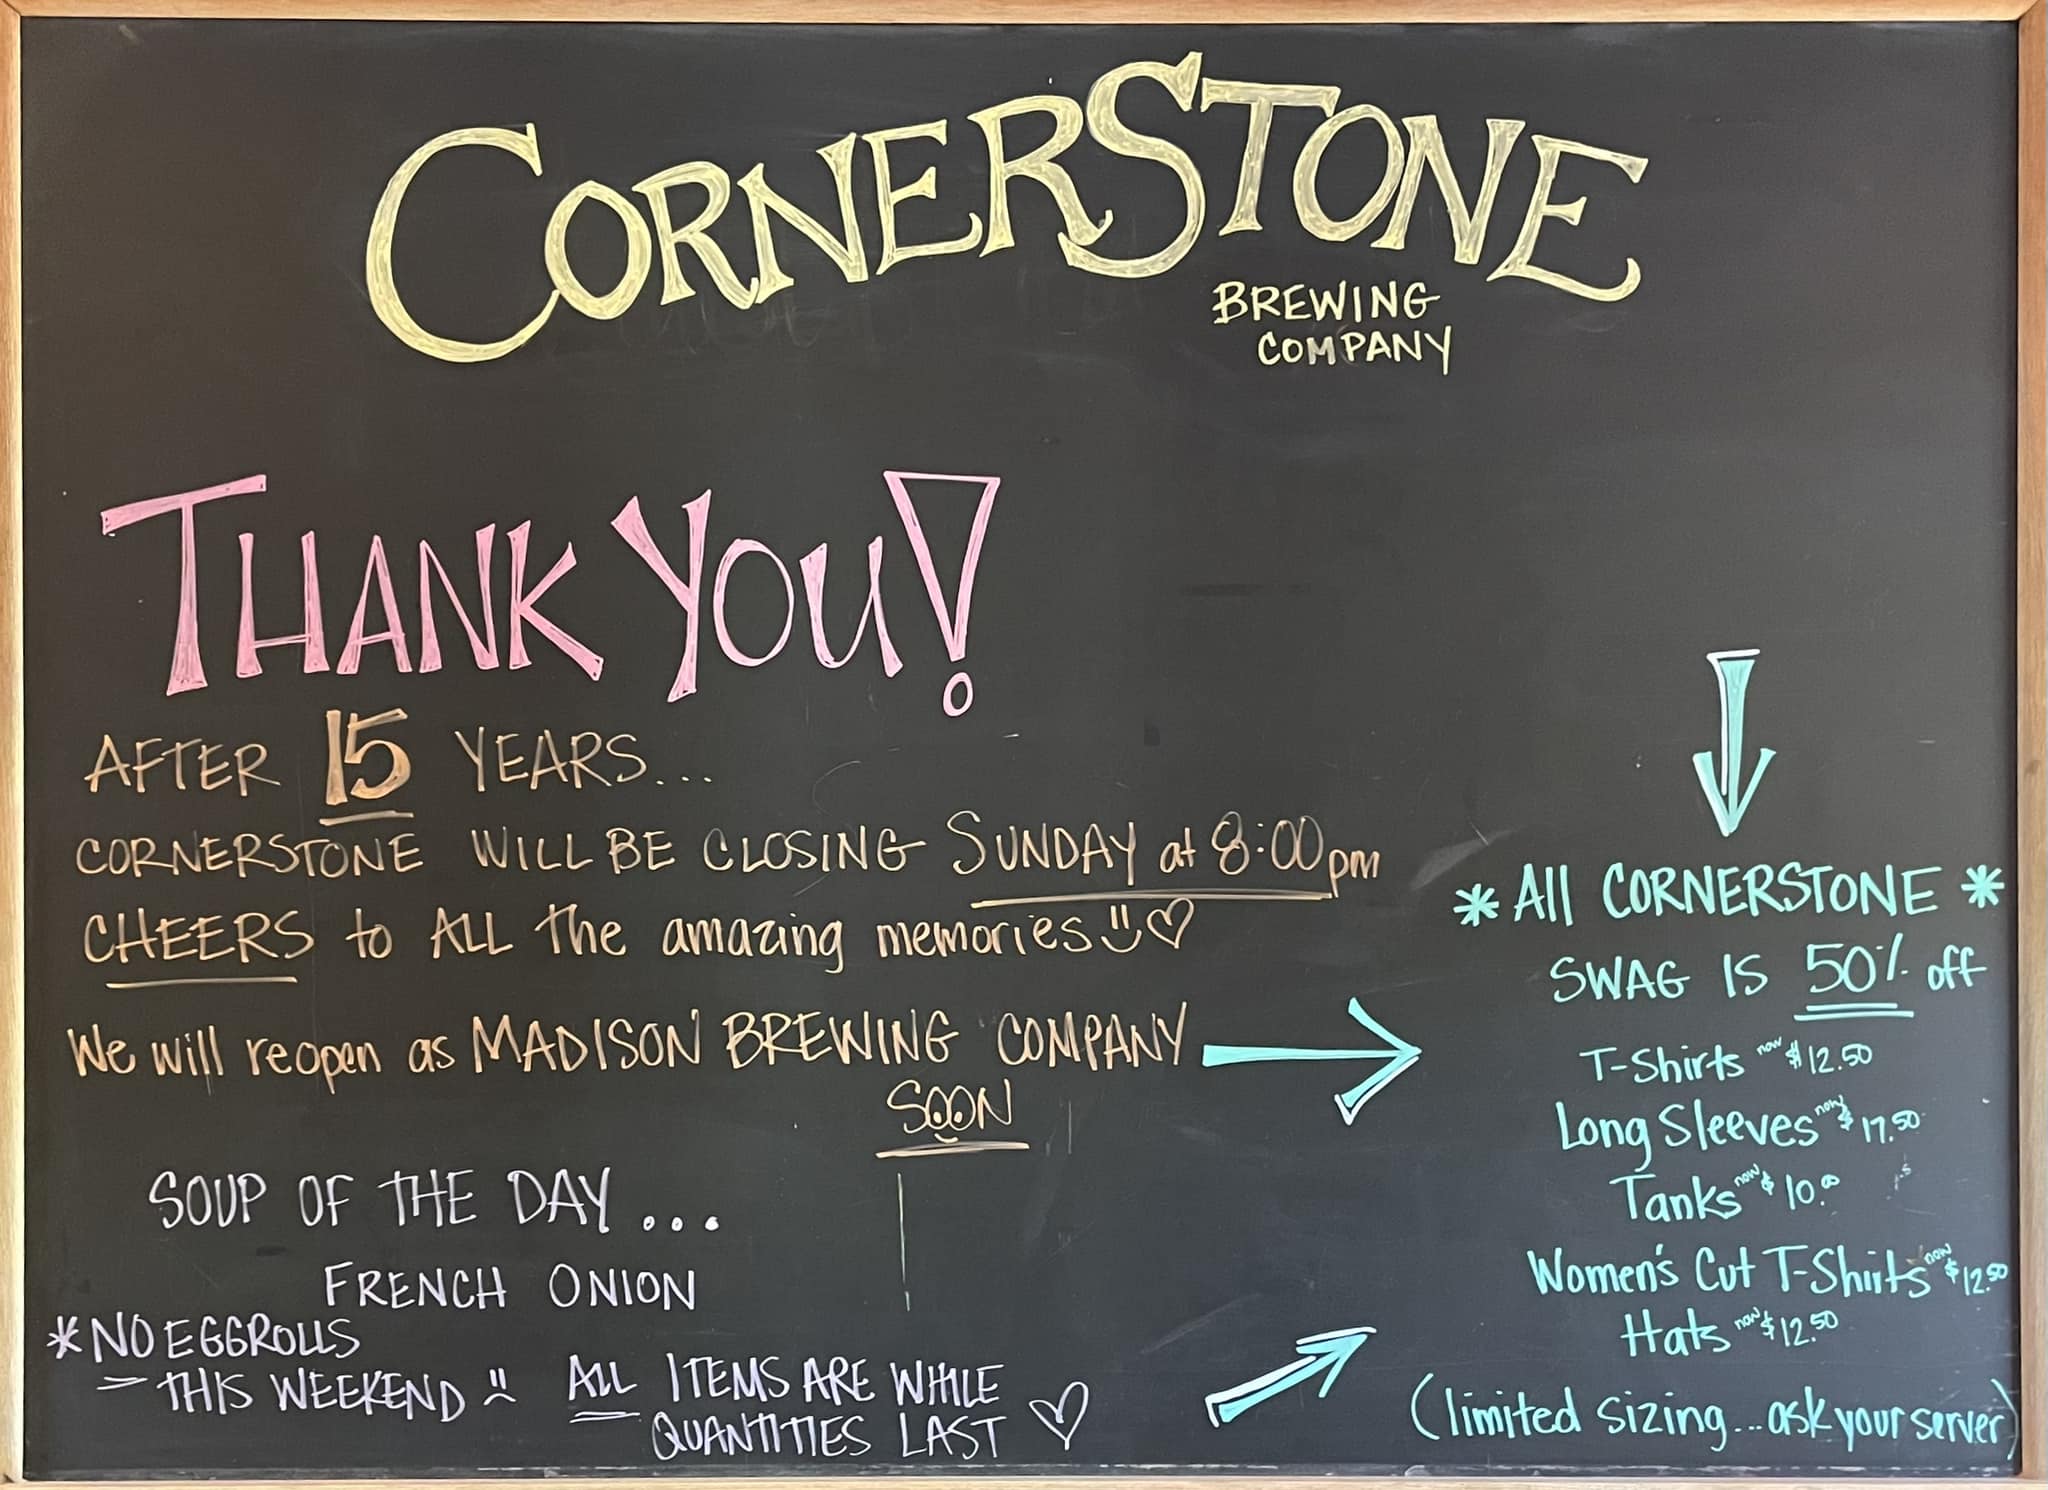 CORNERSTONE
BREWING
COMPANY
THANK YOU!
AFTER 15 YEARS...
CORNERSTONE WILL BE CLOSING SUNDAY at 8:00pm
CHEERS to ALL the amazing memories
We will reopen as MADISON BREWING COMPANY
SOON
SOUP OF THE DAY...
FRENCH ONION
*NO EGGROLLS
THIS WEEKEND
ALL ITEMS ARE WHILE
QUANTITIES LAST
* All CORNERSTONE *
SWAG IS 50% off
T-Shirts now $12.50
Long Sleeves now $17.50
Tanks now $10.00
Women's Cut T-Shirts now $12.50
Hats now $12.50
(limited sizing...ask your server)